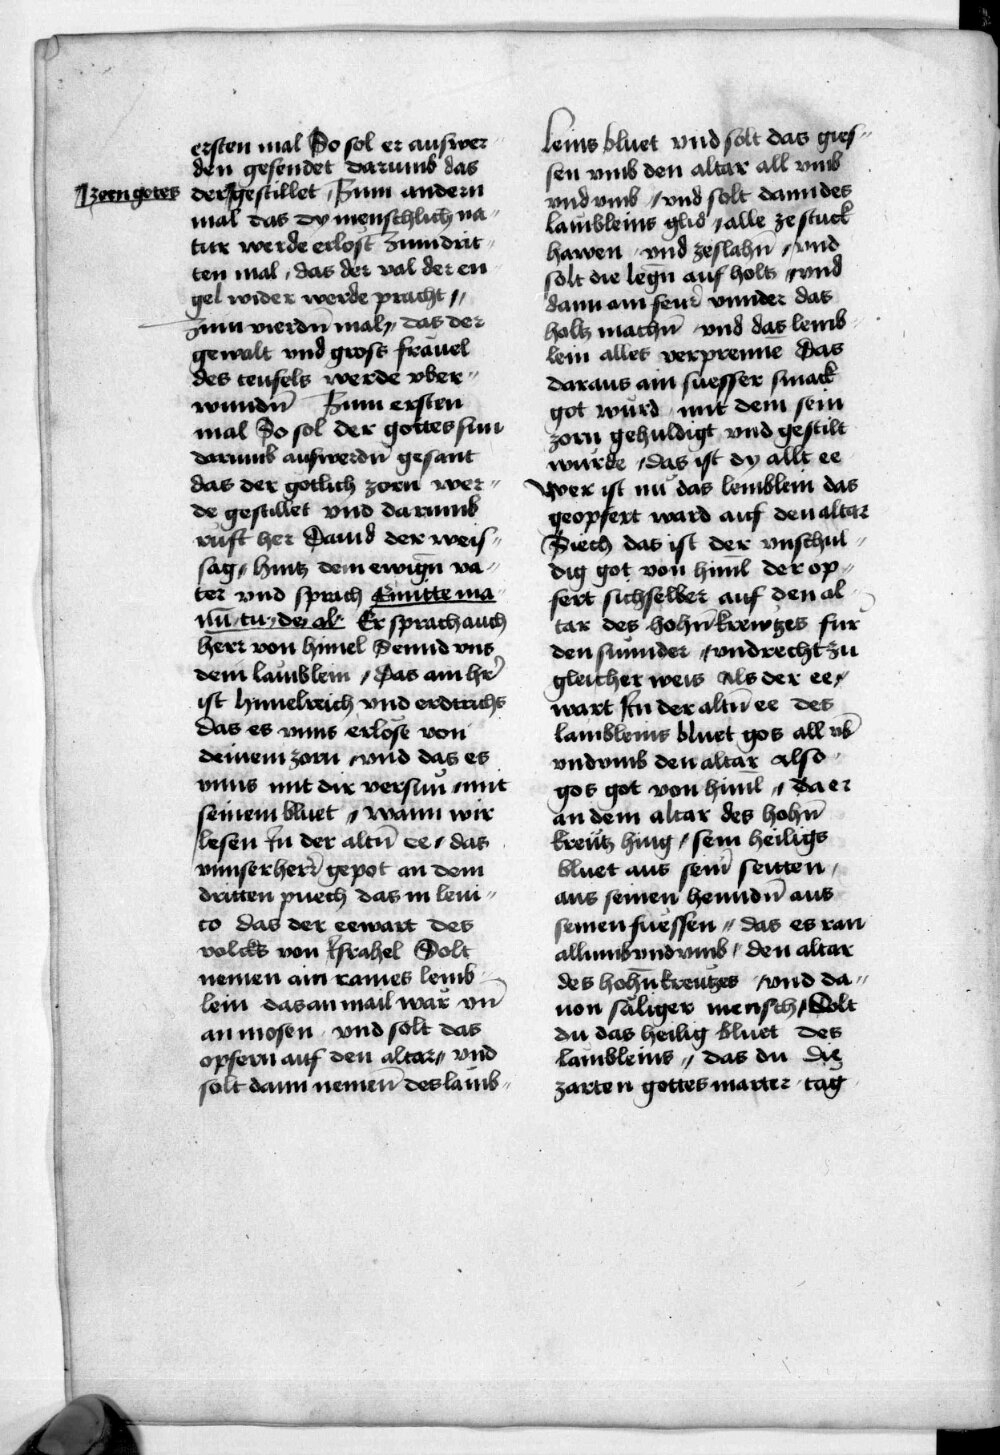 ersten mal So sol er auswer-
den gesendet darumb das
zorn gotes
der gestillet Zum andern
mal das dy menschlich na-
tur werde erlost Zum drit-
ten mal / das der val der en-
gel wider werde pracht //
Zum vierdn̄ mal / das der
gewalt vnd gross fräuel
des teufels werde vber-
wundn̄ Zum ersten
mal So sol der gottes sun
darumb auswerdn̄ gesant
das der gotlich zorn wer-
de gestillet vnd darumb
rüft her Dauid der weis-
sag / hintz dem ewign̄ va-
ter vnd sprach Emitte ma
nū tu de al Er sprach auch
herr von himel Sennd vns
dein lämblein / Das ain hr̄
ist himelreich vnd erdtrichs
das es vnns erlöse von
deinem zorn / vnd das es
vnns mit dir versün / mit
seinem bluet // Wann wir
lesen In der altn̄ ee / das
vnnser herr gepot an dem
dritten puech das in leui-
to das der eewart des
volcks von Israhel Solt
nemen ain raines lemb-
lein das an mail wär vn̄
an mosen / vnd solt das
opfern auf den altar // vnd
solt dann nemen̄ des lämb-
leins bluet vnd solt das gies-
sen vmb den altar all vmb
vnd vmb / vnd solt dann des
lämbleins glid / alle ze stuck
hawen / vnd zeslahn̄ / vnd
solt die legn̄ auf holtz / vnd
dann ain feur̄ vnnder das
holtz machn̄ vnd das lemb-
lein alles verprenne Das
daraus ain suesser smack
got wurd / mit dem sein
zorn gehuldigt vnd gestilt
würde / das ist dy allt ee
Wer ist nu das lemblein das
geopfert ward auf den altar
Siech das ist der vnschul-
dig got von himl̄ der op-
fert sichselber auf den al-
tar des hohn̄ kreutzes für
den sunnder / vnd recht zu
gleicher weis Als der ee /
wart In der altn̄ ee des
lambleins bluet gos all vb̄
vnd vmb den altar Also
gos got von himl̄ // da er
an dem altar des hohn̄
kreutz hing / sein heiligs
bluet aus sein̄ seitten /
aus seinen henndn̄ aus
seinen fuessen // das es ran
allumb vnd vmb / den altar
des hohn̄ kreutzes / vnd da-
uon säliger mensch / Solt
du das heilig bluet des
lämbleins // das du die
zarten gottes marter tag